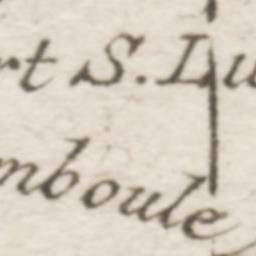 rt S. Lu
mboule